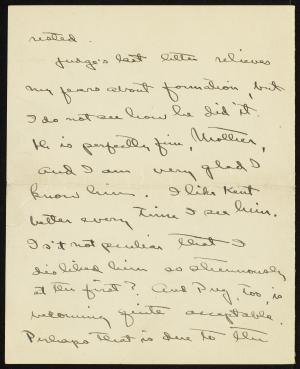 rested.
Judge's last letter relieves
my fears about formation, but
I do not see how he did it.
He is perfectly fine, Mother,
and I am very glad I
know him. I like Kent
better every time I see him.
Isn't not peculiar that I
disliked him so strenuously
at the first? And Preg, too, is
becoming quite acceptable.
Perhaps that is due to the